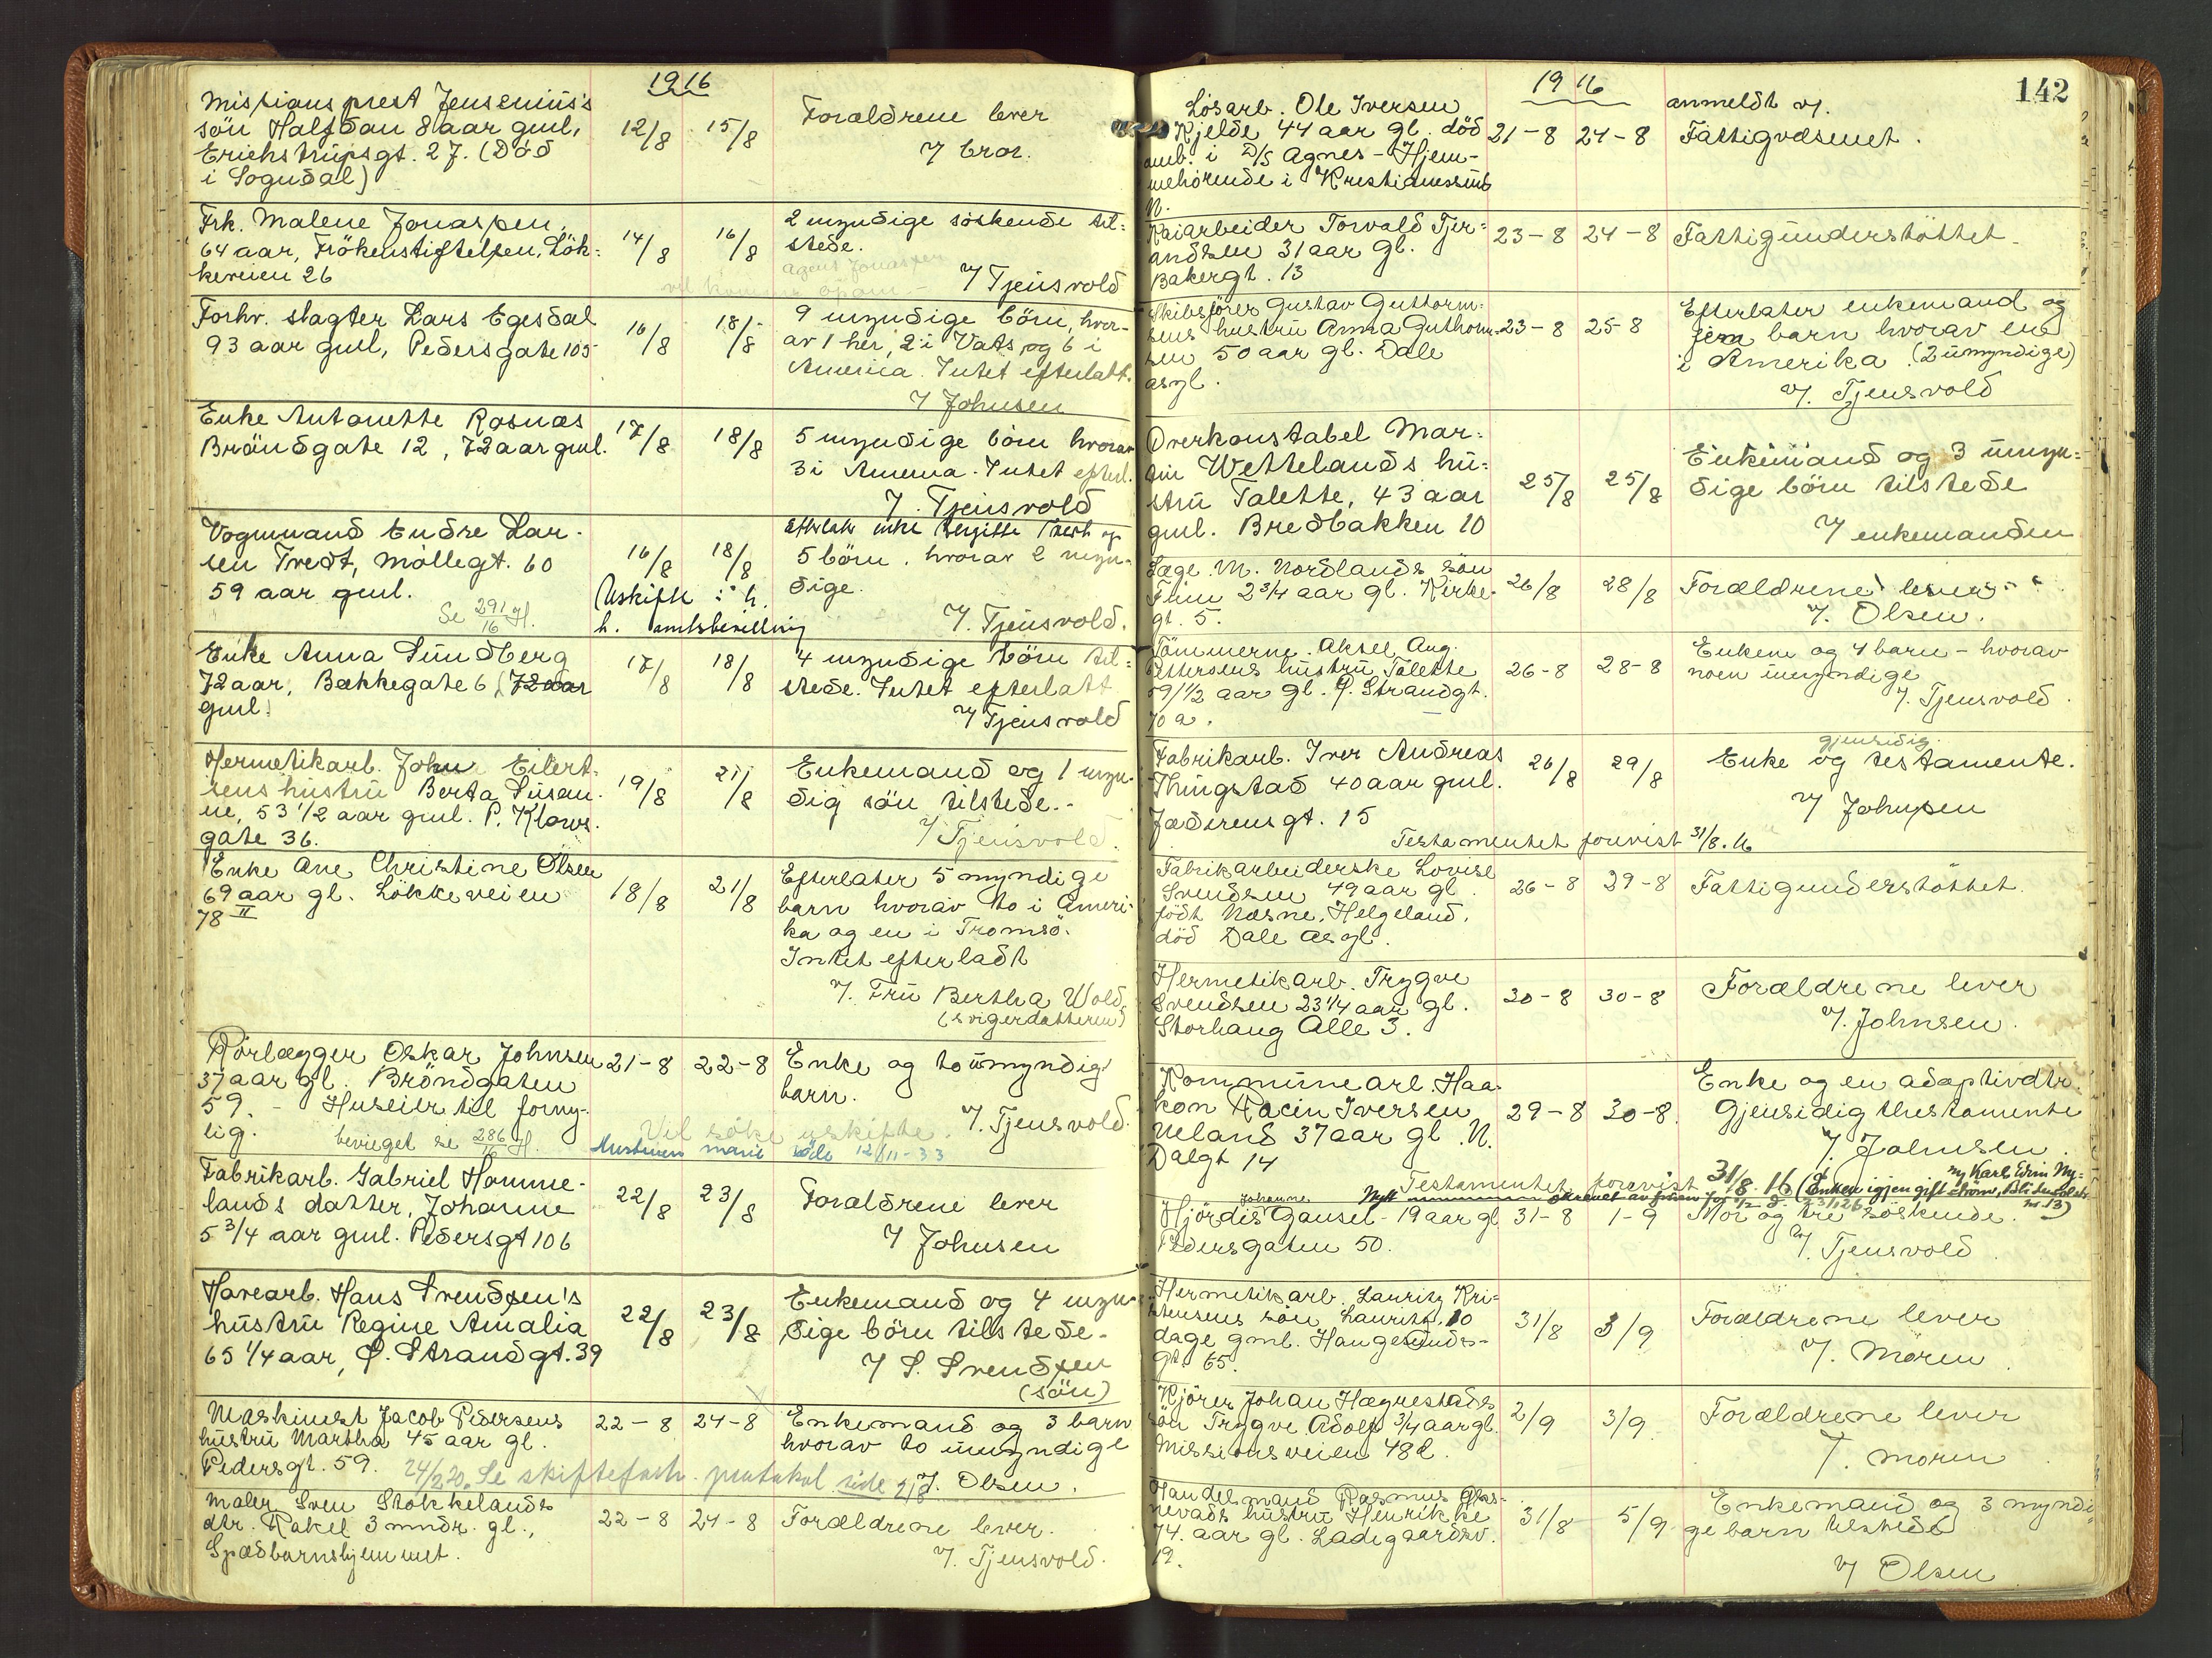 1916
Missionsprest Jensenius's
sön Halfdan 8 aar gml,
Erichstrupsgt. 27. (Död
i Sogndal)
12/8 15/8
Forældrene lever
v/ bror.
Frk. Malene Jonassen,
64 aar, Frökenstiftelsen, Lök-
keveien 26
14/8 16/8
2 myndige söskende til-
stede.
v/ Tjensvold
Forhv. slagter Lars Egesdal
93 aar gml, Pedersgate 105
16/8 18/8
9 myndige börn, hver-
av 1 her, 2 i Vats og 6 i
Amerika. Intet efterlatt.
v/ Johnsen
Enke Antonette Rosnæs
Bröndgate 12, 72 aar gml.
17/8 18/8
5 myndige börn hvorav
3 i Amerika. Intet efterl.
v/ Tjensvold
Vognmand Endre Lar-
sen Tvedt, Möllegt. 60
59 aar gml.
Se 291/16 H.
16/8 18/8
Uskifte i h.
h. amtsbevilling
Efterlater enke Bergitte Tvedt og
5 börn, hvorav 2 myn-
dige.
v/ Tjensvold.
Enke Anna Sundberg
72 aar, Bækkegate 6 (72 aar
gml.
17/8 18/8
4 myndige börn til-
stede. Intet efterlatt
v/ Tjensvold
Hermetikarb. John Eilert-
sens hustru Berta Susan-
ne, 53 1/2 aar gml. P. Klows
gate 36.
19/8 21/8
Enkemand og 1 myn-
dig sön tilstede.
v/ Tjensvold.
Enke Ane Christine Olsen
69 aar gl. Lökkeveien
78 II
18/8 21/8
Efterlater 5 myndige
barn hvorav to i Ameri-
ka og en i Tromsö.
Intet efterladt
v/. Fru Bertha Wold,
(svigerdatteren)
Rörlægger Oskar Johnsen
37 aar gl. Bröndgaten
59. - Huseier til forny-
lig.
bevilget se 286/16 H.
21-8 22-8
Enke og to umyndig
barn.
v/. Tjensvold.
Vil söke uskifte.
Hustruen Marie döde 12/11-33
Fabrikarb. Gabriel Homme-
lands datter, Johanne
5 3/4 aar gml. Pedersgt 106
22/8 23/8
Forældrene lever
v/ Johnsen
Havearb. Hans Svendsen's
hustru Regine Amalia
65 1/4 aar, Ø. Strandgt. 39
22/8 23/8
Enkemand og 4 myn-
dige börn tilstede.
v/ S. Svendsen
(sön)
Maskinist Jacob Pedersens
hustru Martha 45 aar gl.
Pedersgt. 59.
22-8 24-8
Enkemand og 3 barn
hvorav to umyndige
v/. Olsen.
24/2 20. Se skifteforh. protokol side 218
Maler Sven Stokkelands
dtr. Rakel 3 mndr. gl.,
Spædbarnshjemmet.
22-8 24-8
Forældrene lever.
v/. Tjensvold.
1916
142
Lösarb. Ole Iversen
Kjelde 44 aar gl. död
omb. i D/S Agnes - Hjem-
mehörende i Kristianssund
N.
21-8 24-8
anmeldt v/.
Fattigvæsenet.
Kaiarbeider Torvald Tjer-
andsen 31 aar gl.
Bakergt. 13
23-8 24-8
Fattigunderstöttet.
Skibsförer Gustav Guttorm-
sens hustru Anna Guttorm-
sen 50 aar gl. Dale
asyl.
23-8 25-8
Efterlater enkemand og
fem barn hvorav en
i Amerika. (2 umyndige)
v/. Tjensvold
Overkonstabel Mar-
tin Wettelands hu-
stru Talette, 43 aar
gml. Bredbakken 10
25/8 25/8
Enkemand og 3 umyn-
dige börn tilstede
v/ enkemanden
Læge M. Nordlands sön
Finn 2 3/4 aar gl. Kirke-
gt. 5.
26/8 28/8
Forældrene lever
v/. Olsen.
Tömmerm. Aksel Aug.
Pettersens hustru Talette
59 1/2 aar gl. Ø. Strandgt.
70 a.
26-8 28-8
Enkem og 4 barn - hvorav
noen umyndige
v/. Tjensvold.
Fabrikarb. Iver Andreas
Thingstad 40 aar gml.
Jæderensgt. 15
26/8 29/8
gjensidig
Enke og testamente.
v/ Johnsen
Testamentet forevist 31/8. 16
Fabrikarbeiderske Lovise
Svendsen 49 aar gl.
födt Næsne, Helgeland.
död Dale Asyl.
26-8 29-8
Fattigunderstöttet.
Hermetikarb. Trygve
Svendsen 23 1/4 aar gl.
Storhaug Alle 3.
30-8 30-8
Forældrene lever
v/. Johnsen.
Kommunearb. Haa-
kon Racin Iversen
Ueland 37 aar gl. N.
Dalgt 14
29-8 30-8.
Enke og en adoptivdtr.
Gjensidig thestamente
v/. Johnsen.
Testamentet forevist 31/8 16 (Enken igjen gift
Johanne
Hjördis Gausel - 19 aar gl
Pedersgaten 50.
31-8 1-9
Mor og tre söskende.
v/. Tjensvold
Hermetikarb. Lauritz Kri-
stensens sön Lauritz, 10
dage gml. Haugesunds-
gt 65.
31/8 3/9
Forældrene lever
v/. Moren.
Kjörer Johan Hægrestads
sön Trygve Adolf 3/4 aar gl.
Missionsveien 48 d.
2/9 3/9.
Forældrene lever
v/. moren
Handelsmand Rasmus
hustru Henrikke
74 aar gl. Ladegaardsv.
12.
31/8 5/9
Enkemand og 3 myndi-
ge barn tilstede
v/ Olsen